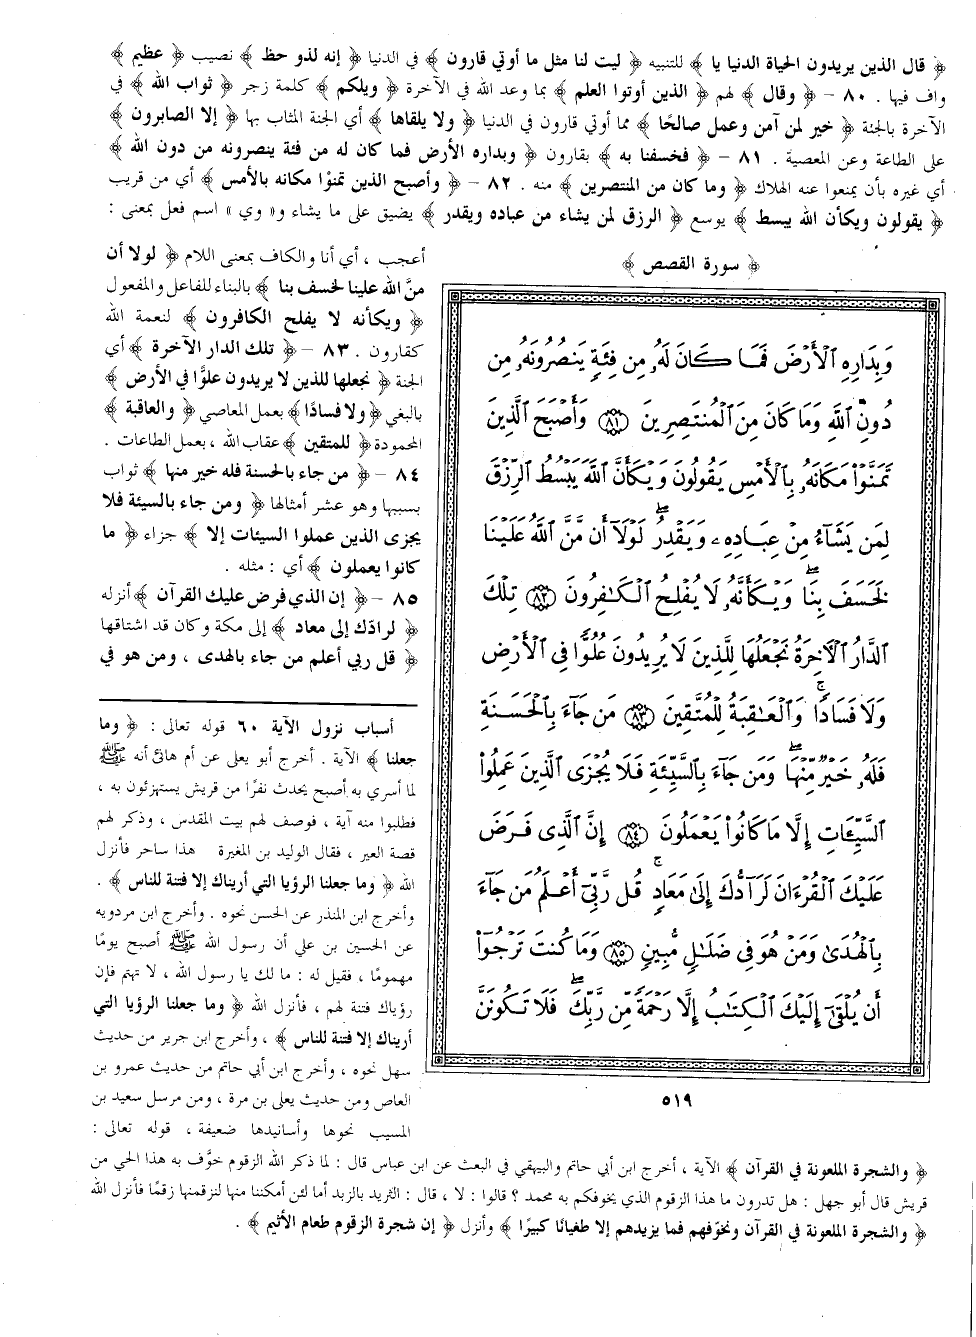 ﴿ قال الذين يريدون الحياة الدنيا يا ﴾ للتنبيه ﴿ ليت لنا مثل ما أوتي قارون ﴾ في الدنيا ﴿ إنه لذو حظ ﴾ نصيب ﴿ عظيم ﴾
واف فيها . ٨٠ – ﴿ وقال ﴾ لهم ﴿ الذين أوتوا العلم ﴾ بما وعد الله في الآخرة ﴿ ويلكم ﴾ كلمة زجر ﴿ ثواب الله ﴾ في
الآخرة بالجنة ﴿ خير لمن آمن وعمل صالحًا ﴾ مما أوتي قارون في الدنيا ﴿ ولا يلقاها ﴾ أي الجنة المثاب بها ﴿ إلا الصابرون ﴾
على الطاعة وعن المعصية . ٨١ – ﴿ فخسفنا به ﴾ بقارون ﴿ وبداره الأرض فما كان له من فئة ينصرونه من دون الله ﴾
أي غيره بأن يمنعوا عنه الهلاك ﴿ وما كان من المنتصرين ﴾ منه . ٨٢ – ﴿ وأصبح الذين تمنوْا مكانه بالأمس ﴾ أي من قريب
﴿ يقولون ويكأن الله يبسط ﴾ يوسع ﴿ الرزق لمن يشاء من عباده ويقدر ﴾ يضيق على ما يشاء و« وي » اسم فعل بمعنى :
أعجب ، أي أنا والكاف بمعنى اللام ﴿ لولا أن
منَّ الله علينا لخسف بنا ﴾ بالبناء للفاعل والمفعول
﴿ ويكأنه لا يفلح الكافرون ﴾ لنعمة الله
كقارون . ٨٣ – ﴿ تلك الدار الآخرة ﴾ أي
الجنة ﴿ نجعلها للذين لا يريدون علوًّا في الأرض ﴾
بالبغي ﴿ ولا فسادًا ﴾ بعمل المعاصي ﴿ والعاقبة ﴾
المحمودة ﴿ للمتقين ﴾ عقاب الله ، بعمل الطاعات .
٨٤ – ﴿ من جاء بالحسنة فله خير منها ﴾ ثواب
بسببها وهو عشر أمثالها ﴿ ومن جاء بالسيئة فلا
يجزى الذين عملوا السيئات إلا ﴾ جزاء ﴿ ما
كانوا يعملون ﴾ أي : مثله .
٨٥ – ﴿ إن الذي فرض عليك القرآن ﴾ أنزله
﴿ لرادّك إلى معاد ﴾ إلى مكة وكان قد اشتاقها
﴿ قل ربي أعلم من جاء بالهدى ، ومن هو في
﴿ سورة القصص ﴾
وَبِدَارِهِ ٱلْأَرْضَ فَمَا كَانَ لَهُۥ مِن فِئَةٍ يَنصُرُونَهُۥ مِن
دُونِ ٱللَّهِ وَمَا كَانَ مِنَ ٱلْمُنتَصِرِينَ ﴿٨١﴾ وَأَصْبَحَ ٱلَّذِينَ
تَمَنَّوْاْ مَكَانَهُۥ بِٱلْأَمْسِ يَقُولُونَ وَيْكَأَنَّ ٱللَّهَ يَبْسُطُ ٱلرِّزْقَ
لِمَن يَشَآءُ مِنْ عِبَادِهِۦ وَيَقْدِرُ ۖ لَوْلَآ أَن مَّنَّ ٱللَّهُ عَلَيْنَا
لَخَسَفَ بِنَا ۖ وَيْكَأَنَّهُۥ لَا يُفْلِحُ ٱلْكَٰفِرُونَ ﴿٨٢﴾ تِلْكَ
ٱلدَّارُ ٱلْأَخِرَةُ نَجْعَلُهَا لِلَّذِينَ لَا يُرِيدُونَ عُلُوًّا فِى ٱلْأَرْضِ
وَلَا فَسَادًا ۚ وَٱلْعَٰقِبَةُ لِلْمُتَّقِينَ ﴿٨٣﴾ مَن جَآءَ بِٱلْحَسَنَةِ
فَلَهُۥ خَيْرٌ مِّنْهَا ۖ وَمَن جَآءَ بِٱلسَّيِّئَةِ فَلَا يُجْزَى ٱلَّذِينَ عَمِلُواْ
ٱلسَّيِّـَٔاتِ إِلَّا مَا كَانُواْ يَعْمَلُونَ ﴿٨٤﴾ إِنَّ ٱلَّذِى فَرَضَ
عَلَيْكَ ٱلْقُرْءَانَ لَرَآدُّكَ إِلَىٰ مَعَادٍ ۚ قُل رَّبِّىٓ أَعْلَمُ مَن جَآءَ
بِٱلْهُدَىٰ وَمَنْ هُوَ فِى ضَلَٰلٍ مُّبِينٍ ﴿٨٥﴾ وَمَا كُنتَ تَرْجُوٓاْ
أَن يُلْقَىٰٓ إِلَيْكَ ٱلْكِتَٰبُ إِلَّا رَحْمَةً مِّن رَّبِّكَ ۖ فَلَا تَكُونَنَّ
٥١٩
أسباب نزول الآية ٦٠ قوله تعالى : ﴿ وما
جعلنا ﴾ الآية . أخرج أبو يعلى عن أم هانئ أنه ﷺ
لما أسري به أصبح يحدث نفرًا من قريش يستهزئون به ،
فطلبوا منه آية ، فوصف لهم بيت المقدس ، وذكر لهم
قصة العير ، فقال الوليد بن المغيرة هذا ساحر فأنزل
الله ﴿ وما جعلنا الرؤيا التي أريناك إلا فتنة للناس ﴾ .
وأخرج ابن المنذر عن الحسن نحوه . وأخرج ابن مردويه
عن الحسين بن علي أن رسول الله ﷺ أصبح يومًا
مهمومًا ، فقيل له : ما لك يا رسول الله ، لا تهتم فإن
رؤياك فتنة لهم ، فأنزل الله ﴿ وما جعلنا الرؤيا التي
أريناك إلا فتنة للناس ﴾ ، وأخرج ابن جرير من حديث
سهل نحوه ، وأخرج ابن أبي حاتم من حديث عمرو بن
العاص ومن حديث يعلى بن مرة ، ومن مرسل سعيد بن
المسيب نحوها وأسانيدها ضعيفة ، قوله تعالى :
﴿ والشجرة الملعونة في القرآن ﴾ الآية ، أخرج ابن أبي حاتم والبيهقي في البعث عن ابن عباس قال : لما ذكر الله الزقوم خوَّف به هذا الحي من
قريش قال أبو جهل : هل تدرون ما هذا الزقوم الذي يخوفكم به محمد ؟ قالوا : لا ، قال : الثريد بالزبد أما لئن أمكننا منها لنزقمنها زقمًا فأنزل الله
﴿ والشجرة الملعونة في القرآن ونخوّفهم فما يزيدهم إلا طغيانًا كبيرًا ﴾ وأنزل ﴿ إن شجرة الزقوم طعام الأثيم ﴾ .